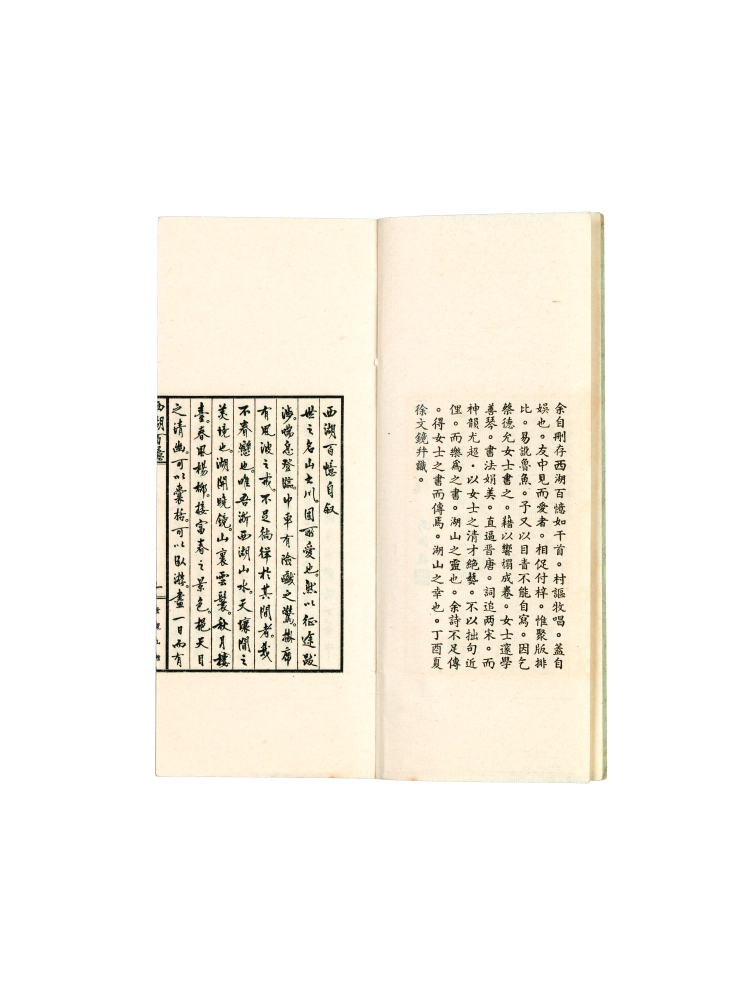 余自刪存西湖百憶如干首。村謳牧唱。蓋自
娛也。友中見而愛者。相促付梓。惟聚版排
比。易訛魯魚。予又以目眚不能自寫。因乞
蔡德允女士書之。藉以響搨成卷。女士邃學
善琴。書法娟美。直逼晋唐。詞追两宋。而
神韻尤超。以女士之清才絶藝。不以拙句近
俚。而樂爲之書。湖山之靈也。余詩不足傳
。得女士之書而傳焉。湖山之幸也。丁酉夏
徐文鏡幷識。
西湖百憶自叙
世之名山大川。固可愛也。然以征途跋
涉。喘息登臨。巾車有險巇之驚。掛席
有風波之戒。不足徜徉於其間者。幾
不眷戀也。唯吾浙西湖山水。天壤間之
美境也。湖開曉鏡。山裹雲鬟。秋月樓
臺。春風楊柳。接富春之景色。挹天目
之清幽。可以囊括。可以臥游。盡一日而有
西湖百憶
一